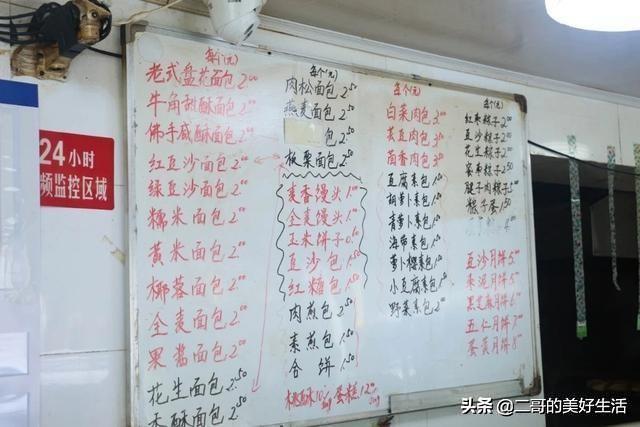 24小时
频监控区域
每个(元)
老式盘花面包2.00
牛角甜酥面包2.00
佛手咸酥面包2.00
红豆沙面包2.00
绿豆沙面包2.00
糯米面包2.00
黄米面包2.00
椰蓉面包2.00
全麦面包2.00
果酱面包2.00
花生面包2.50
香酥面包2.50
每个(元)
肉松面包2.50
燕麦面包2.50
包2.50
板栗面包2.50
麦香馒头1.00
全麦馒头1.00
玉米饼子0.60
豆沙包1.50
红糖包1.50
肉煎包2.50
素煎包1.50
合饼1.50
桃酥10元
蛋糕12.00
每个(元)
白菜肉包3.00
芸豆肉包3.00
茴香肉包3.00
豆腐素包1.50
胡萝卜包1.50
青萝卜包1.50
海带素包1.50
萝卜樱素包1.50
小豆腐素包1.50
野菜素包2.00
每个(元)
红枣粽子2.50
豆沙粽子2.50
花生粽子2.50
蜜枣粽子2.50
腱子肉粽5.00
粽子蛋1.50
4.00
豆沙月饼5.00
枣泥月饼5.00
黑芝麻月饼6.00
五仁月饼7.00
蛋黄月饼8.00
头条 @二哥的美好生活